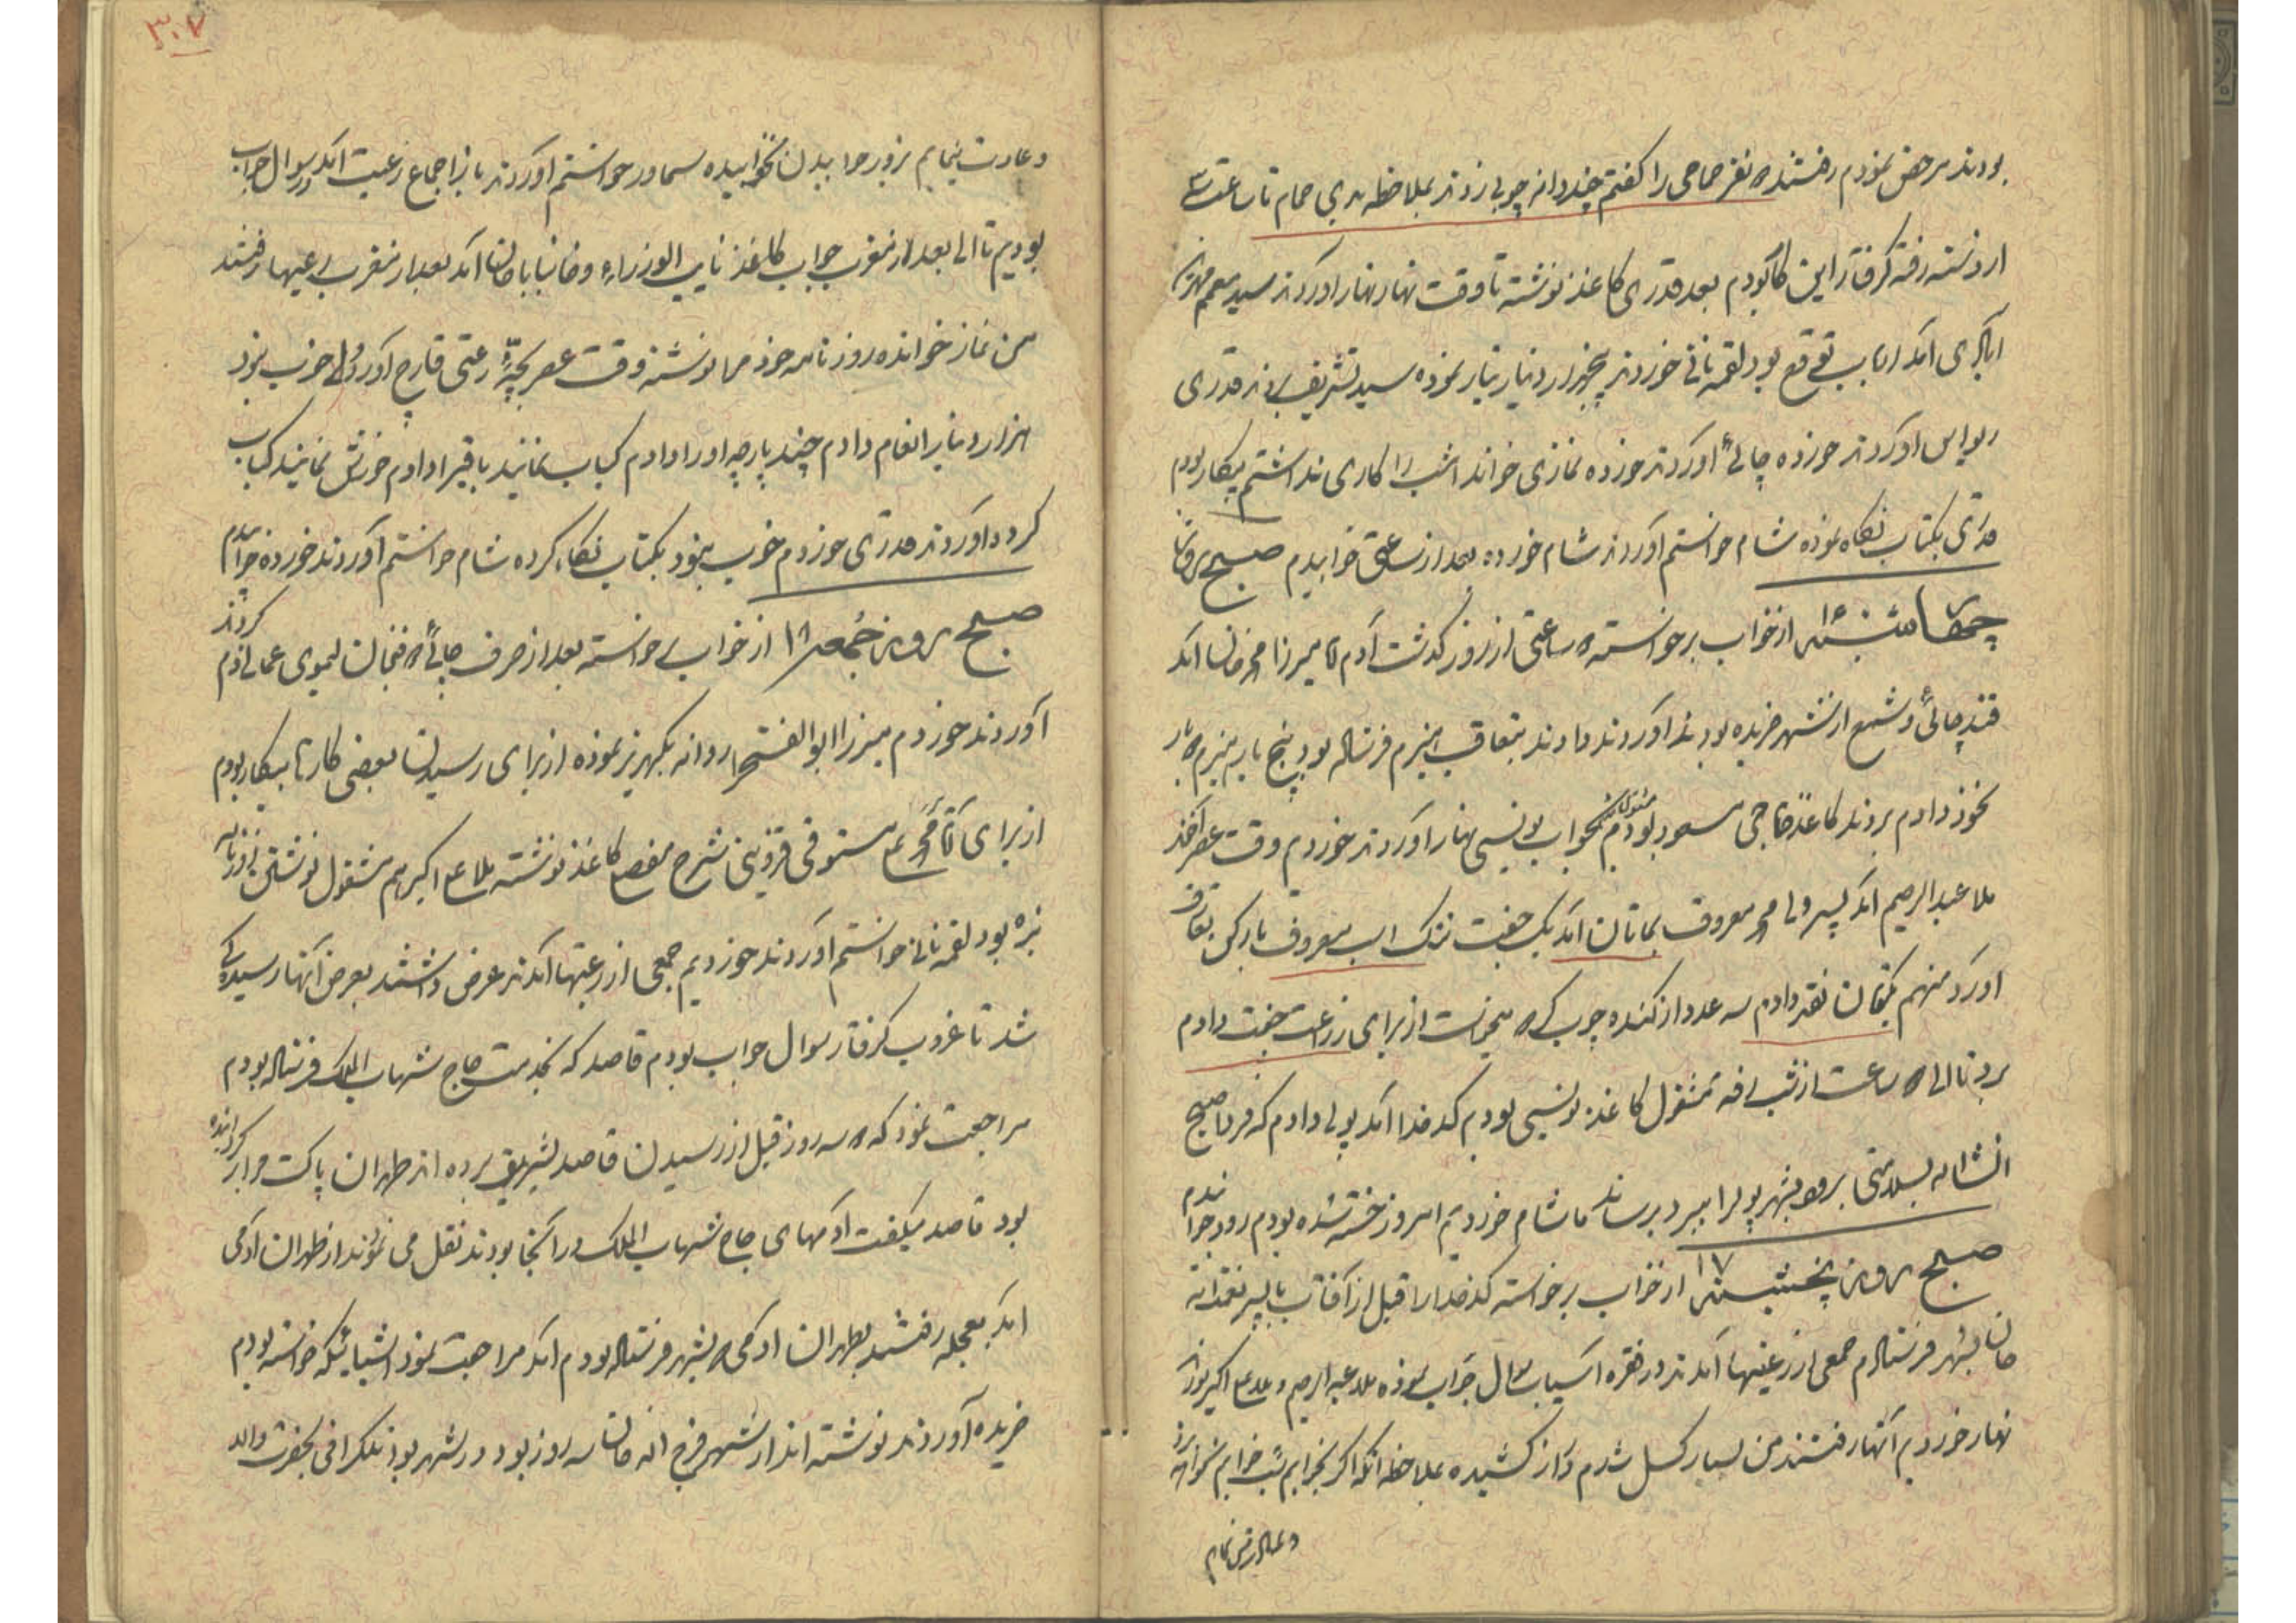 بودند مرخص نمودم رفتند ه نفر حمامی را گفتم چند دانه چوبی زدند بملاحظه بدی حمام تا ساعت
از دسته رفته گرفتار این کار بودم بعد قدری کاغذ نوشته تا وقت نهار نهار آوردند سید
آمد اما بی توقع بود لقمه نانی خوردند پنجهزار دینار نیاز نموده سید تشریف بردند قدری
ریواس آوردند خورده چائی آوردند خورده نمازی خوانده امشب را کاری نداشتم بیکار بودم
قدری بکتاب نگاه نموده شام خواستم آوردند شام خورده بعد از ساعتی خوابیدم صبح روز
چهارشنبه ۱۶ از خواب برخواسته ه ساعتی از روز گذشت آدم میرزا محمد خان آمد
قند چائی و شمع از شهر خریده بودند آوردند دادند بتعاقب هیزم فرستاده بود پنج بار هیزم ه بار
بخود دادم بردند کاغذ حاجی مسعود بود مشغول بجواب نویسی نهار آوردند خوردم وقت عصر آخوند
ملا عبدالرحیم آمد پسر ولی محمد معروف بماتان آمد یک جفت ترک اسب معروف بارکی تعارف
آورد منهم یکتومان نقد دادم سه عدد از کنده چوب که میخواست از برای زراعت جفت دادم
برد تا الی ه ساعت از شب رفته مشغول کاغذ نویسی بودم کدخدا آمد پولی دادم که فردا صبح
انشاءالله بسلامتی برود بشهر پول را ببرد برساند ما شام خوردیم امروز خسته شده بودم زود خوابیدم
صبح روز پنجشنبه ۱۷ از خواب برخواسته کدخدا را قبل از آفتاب با پسر نعمت الله
خان بشهر فرستادم جمعی از رعیتها آمدند در فقره آسیاب سؤال جواب نموده ملا عبدالرحیم و ملا علی اکبر بودند
نهار خوردیم آنها رفتند من بسیار کسل شدم دراز کشیده بملاحظه آنکه اگر بخوابم شب خوابم نخواهد برد
و عادت نمایم
و عادت نمایم بزور خوابیدن نخوابیده سماور خواستم آوردند باز اجماع رعیت آمد در سوال جواب
بودیم تا الی بعد از مغرب جواب کاغذ نایب الوزراء و خان باباخان آمد بعد از مغرب رعیتها رفتند
من نماز خوانده روزنامه خود را نوشته وقت عصر بچه رعیتی قارچ آورد ولی خوب نبود
هزار دینار انعام دادم چند پارچه او را دادم کباب نمایند باقی را دادم خورش نمایند کباب
کرده آوردند قدری خوردم خوب نبود بکتاب نگاه کرده شام خواستم آوردند خورده خوابیدم
صبح روز جمعه ۱۸ از خواب برخواسته بعد از صرف چائی ه فنجان لیموی عمانی دم کردند
آوردند خوردم میرزا ابوالفتح را روانه بکهریز نموده از برای رسیدن بعضی کارها بیکار بودم
از برای آقا محمد علی مستوفی قزوینی شرح مفصل کاغذ نوشته ملا علی اکبر هم مشغول نوشتن روزنامه
بنده بود لقمه نانی خواستم آوردند خوردیم جمعی از رعیتها آمدند عرض داشتند بعرض آنها رسیدگی
شد تا غروب گرفتار سوال جواب بودم قاصد که بخدمت حاج شهاب الملک فرستاده بودم
مراجعت نمود که ه سه روز قبل از رسیدن قاصد تشریف برده اند طهران پاکت مرا برگردانده
بود قاصد میگفت آدمهای حاج شهاب الملک در آنجا بودند نقل می نمودند از طهران آدمی
آمد بعجله رفتند بطهران آدمی ه بشهر فرستاده بودم آمد مراجعت نمود اشیائیکه خواسته بودم
خریده آوردند نوشته اند از شهر فرج الله خان سه روز بود در شهر بود تلگرافی بحضرت والد
۳۰۷